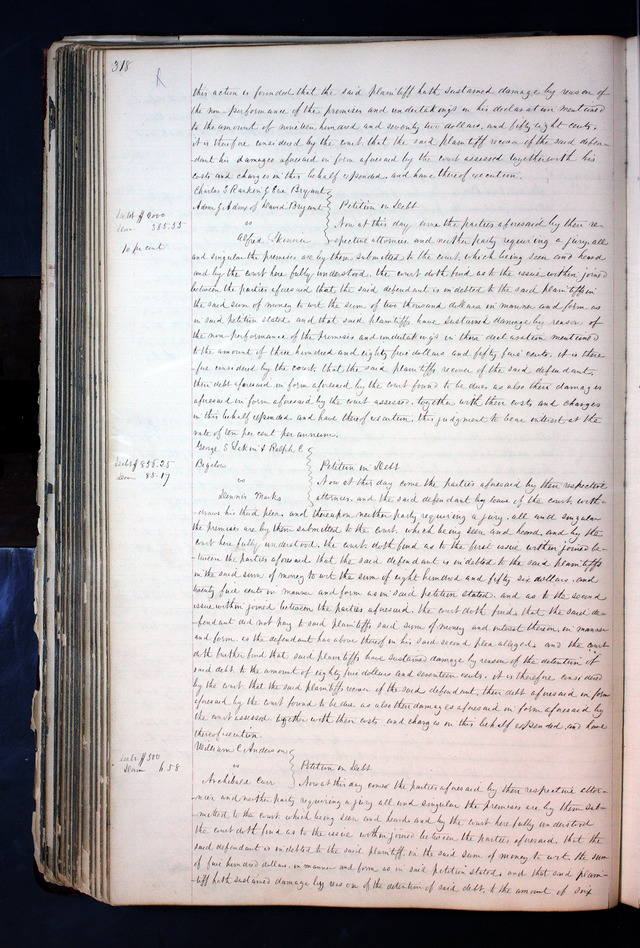 318
R
this action is founded that the said plaintiff hath sustained damage by reason of
the non performance of the promises and undertakings in his declaration mentioned
to the amount of nineteen hundred and seventy two dollars, and fifty eight cents.
it is therefore considered by the court that the said plaintiff recover of the said defen-
dant his damages aforesaid in form aforesaid by the court assessed together with his
costs and charges in this behalf expended, and have thereof execution.
Charles S Rankin & Eve Bryant
Adm & Admx of David Bryant Petition in Debt
Debt $ 2000
Dam 385.55
10 per cent
vs Now at this day come the parties aforesaid by their re-
Alfred Skinner spective attornies, and neither party requiring a jury, all
and singular the premises are by them submitted to the court, which being seen and heard
and by the court here fully understood, the court doth find as to the issue within joined
between the parties aforesaid that the said defendant is indebted to the said plaintiffs in
the said sum of money to wit the sum of two thousand dollars in manner and form as
in said petition stated and that said plaintiffs have sustained damage by reason of
the non performance of the promises and undertakings in their declaration mentioned
to the amount of three hundred and eighty five dollars and fifty five cents. it is there-
fore considered by the court, that the said plaintiffs recover of the said defendant,
their debt aforesaid in form aforesaid by the court found to be due, as also their damages
aforesaid in form aforesaid by the court assessed, together with their costs and charges
in this behalf expended and have thereof execution, this judgment to bear interest at the
rate of ten per cent per annum.
George S & Ralph C
Bigelow Petition in Debt
Debt $ 856.25
Dam 85.17
vs Now at this day come the parties aforesaid by their respective
Dennis Marks attornies, and the said defendant by leave of the court with-
draws his third plea, and thereupon neither party requiring a jury, all and singular
the premises are by them submitted to the court, which being seen and heard, and by the
court here fully understood, the court doth find as to the first issue within joined be-
tween the parties aforesaid that the said defendant is indebted to the said plaintiffs
in the said sum of money to wit the sum of eight hundred and fifty six dollars, and
twenty five cents in manner and form as in said petition stated, and as to the second
issue within joined between the parties aforesaid, the court doth find, that the said de-
fendant did not pay to said plaintiffs said sum of money and interest thereon, in manner
and form as the defendant has above thereof in his said second plea alleged, and the court
doth further find that said plaintiffs have sustained damage by reason of the detention of
said debt to the amount of eighty five dollars and seventeen cents. it is therefore considered
by the court that the said plaintiffs recover of the said defendant, their debt aforesaid in form
aforesaid by the court found to be due as also their damages aforesaid in form aforesaid by
the court assessed together with their costs and charges in this behalf expended, and have
thereof execution.
William C Anderson
Debt $ 500
Dam 6.58
vs Petition in Debt
Archibald Carr Now at this day comes the parties aforesaid by their respective attor-
nies and neither party requiring a jury all and singular the premises are by them sub-
mitted to the court which being seen and heard and by the court here fully understood
the court doth find as to the issue within joined between the parties aforesaid, that the
said defendant is indebted to the said plaintiff, in the said sum of money to wit, the sum
of five hundred dollars, in manner and form as in said petition stated, and that said plain-
tiff hath sustained damage by reason of the detention of said debt, to the amount of six